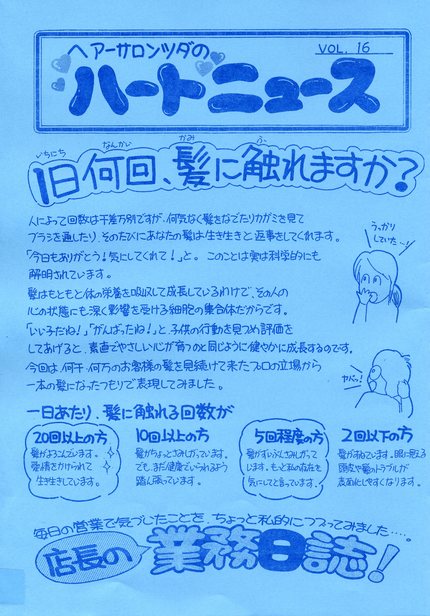 ヘアーサロンツダの
VOL. 16
ハートニュース
いちにち なんかい かみ ふ
1日何回、髪に触れますか?
人によって回数は千差万別ですが、何気なく髪をなでたりカガミを見て
ブラシを通したり、そのたびにあなたの髪は生き生きと返事をしてくれます。
「今日もありがとう!気にしてくれて!」と。 このことは実は科学的にも
解明されています。
髪はもともと体の栄養を吸収して成長しているわけで、その人の
心の状態にも深く影響を受ける細胞の集合体だからです。
「いい子だね!」「がんばったね!」と、子供の行動を見つめ評価を
してあげると、素直でやさしい心が育つのと同じように健やかに成長するのです。
今回は、何千、何万のお客様の髪を見続けて来たプロの立場から
一本の髪になったつもりで表現してみました。
うっかり
していた…
ヤバッ!
一日あたり、髪に触れる回数が
20回以上の方
髪がよろこんでいます。
愛情をかけられて
生き生きしています。
10回以上の方
髪がちょっとさみしがっています。
でも、まだ健康でいられるよう
踏ん張っています。
5回程度の方
髪がずいぶんさみしがって
います。もっと私の存在を
気にしてと言っています。
2回以下の方
髪がすねています。眼に見える
頭皮や髪のトラブルが
表面化しやすくなります。
毎日の営業で気づいたことを、ちょっと私的につづってみました……。
店長の 業務日誌!